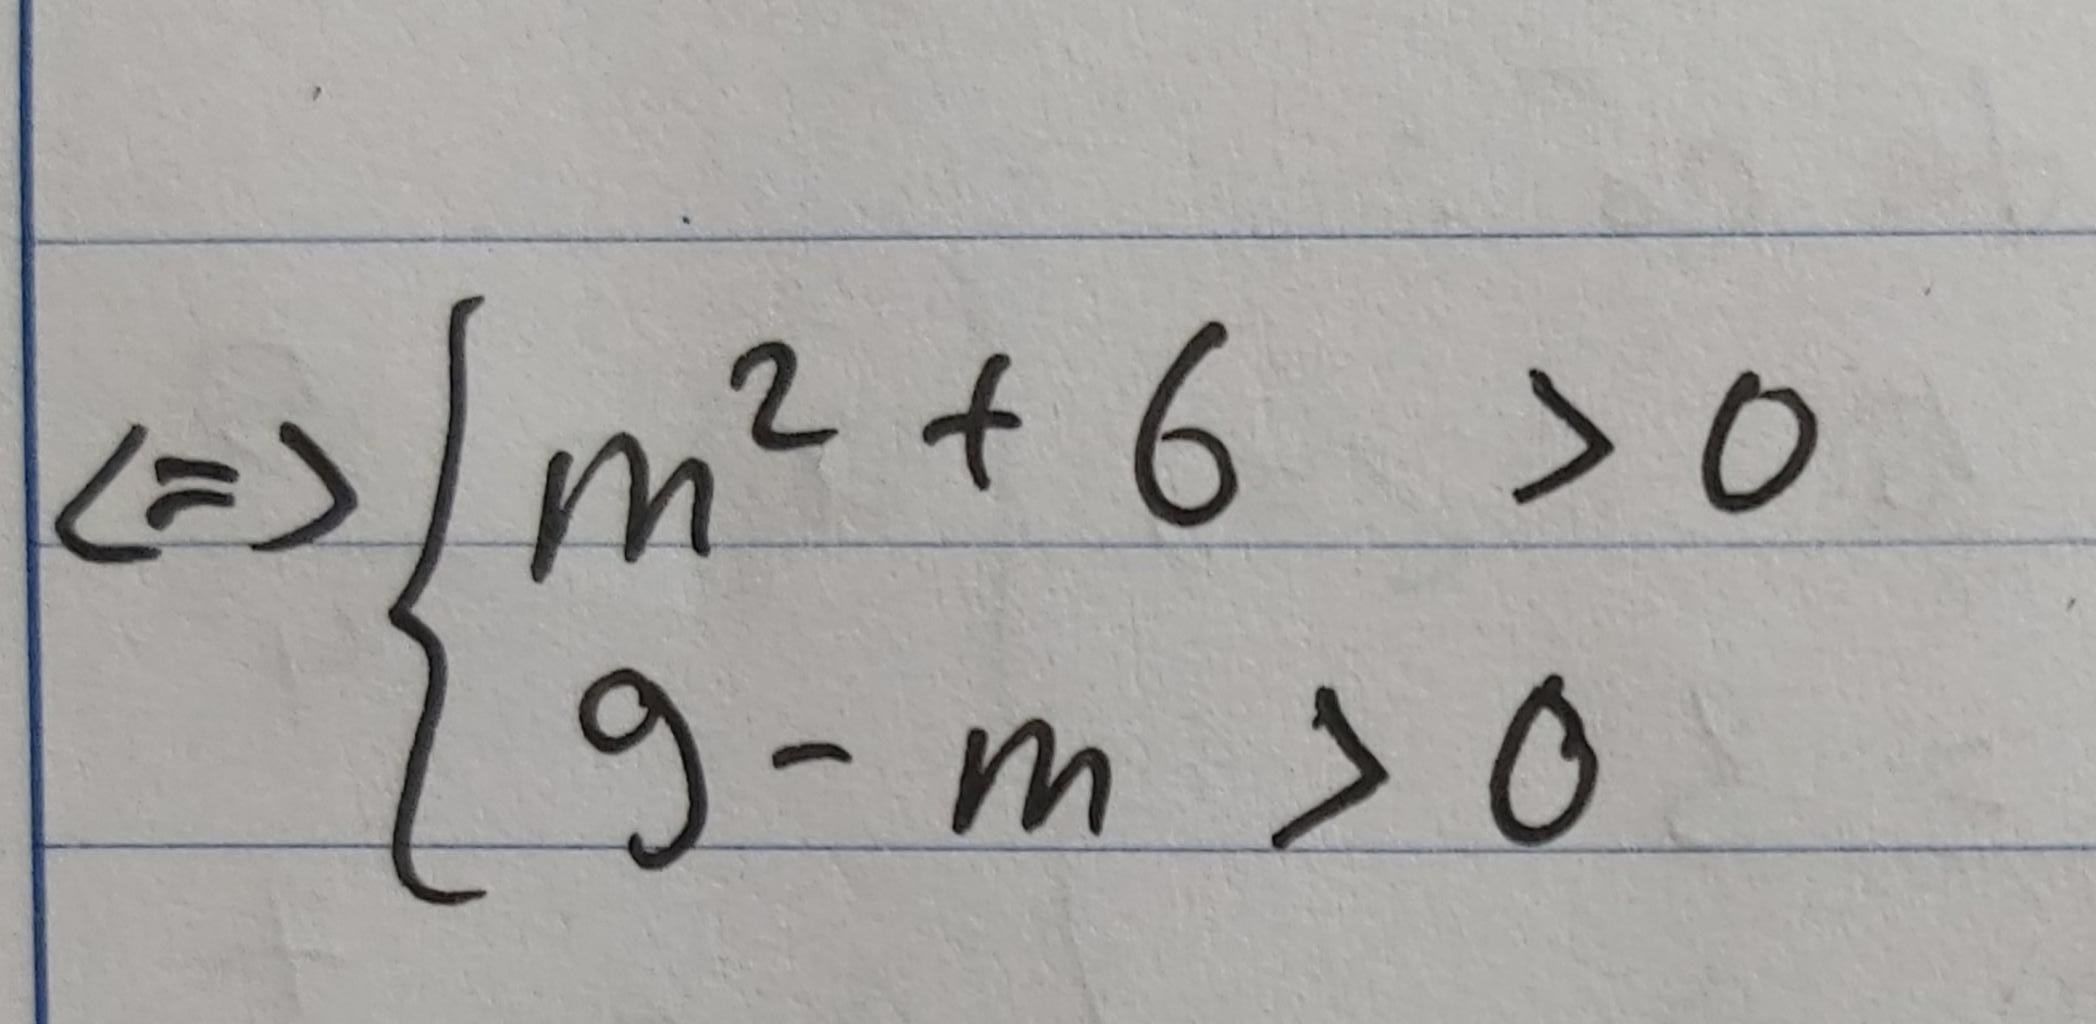 <=> { m² + 6 > 0
9 - m > 0